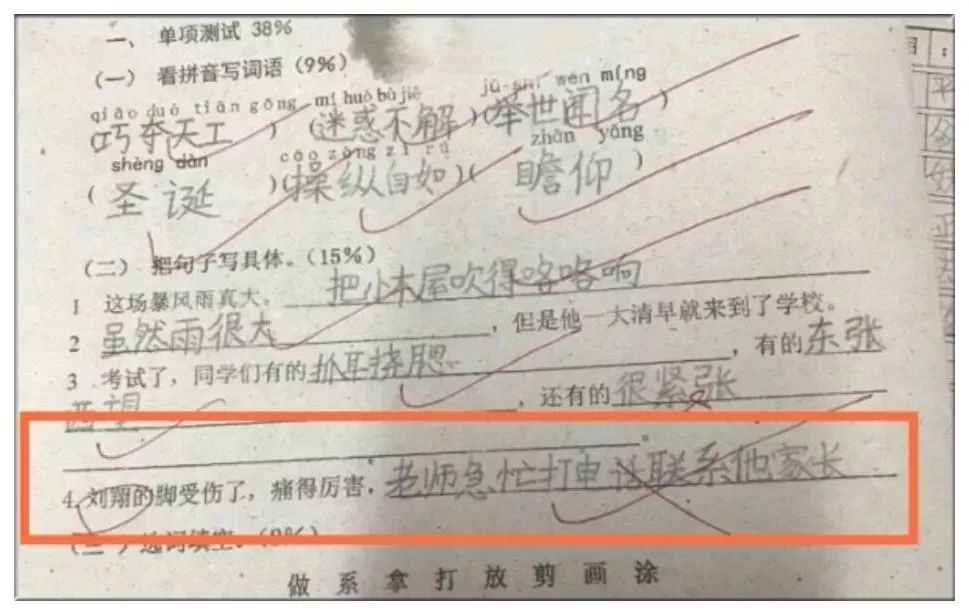 一、单项测试 38%
(一) 看拼音写词语 (9%)
qiǎo duó tiān gōng mí huò bù jiě jǔ shì wén míng
(巧夺天工) (迷惑不解) (举世闻名)
shèng dàn cāo zòng zì rú zhān yǎng
(圣诞) (操纵自如) (瞻仰)
(二) 把句子写具体。(15%)
1 这场暴风雨真大。 把小木屋吹得咯咯响
2 虽然雨很大,但是他一大清早就来到了学校。
3 考试了,同学们有的抓耳挠腮,有的东张
西望,还有的很紧张
。
4. 刘翔的脚受伤了,痛得厉害,老师急忙打电话联系他家长
(三) 选词填空。(8%)
做 系 拿 打 放 剪 画 涂
平